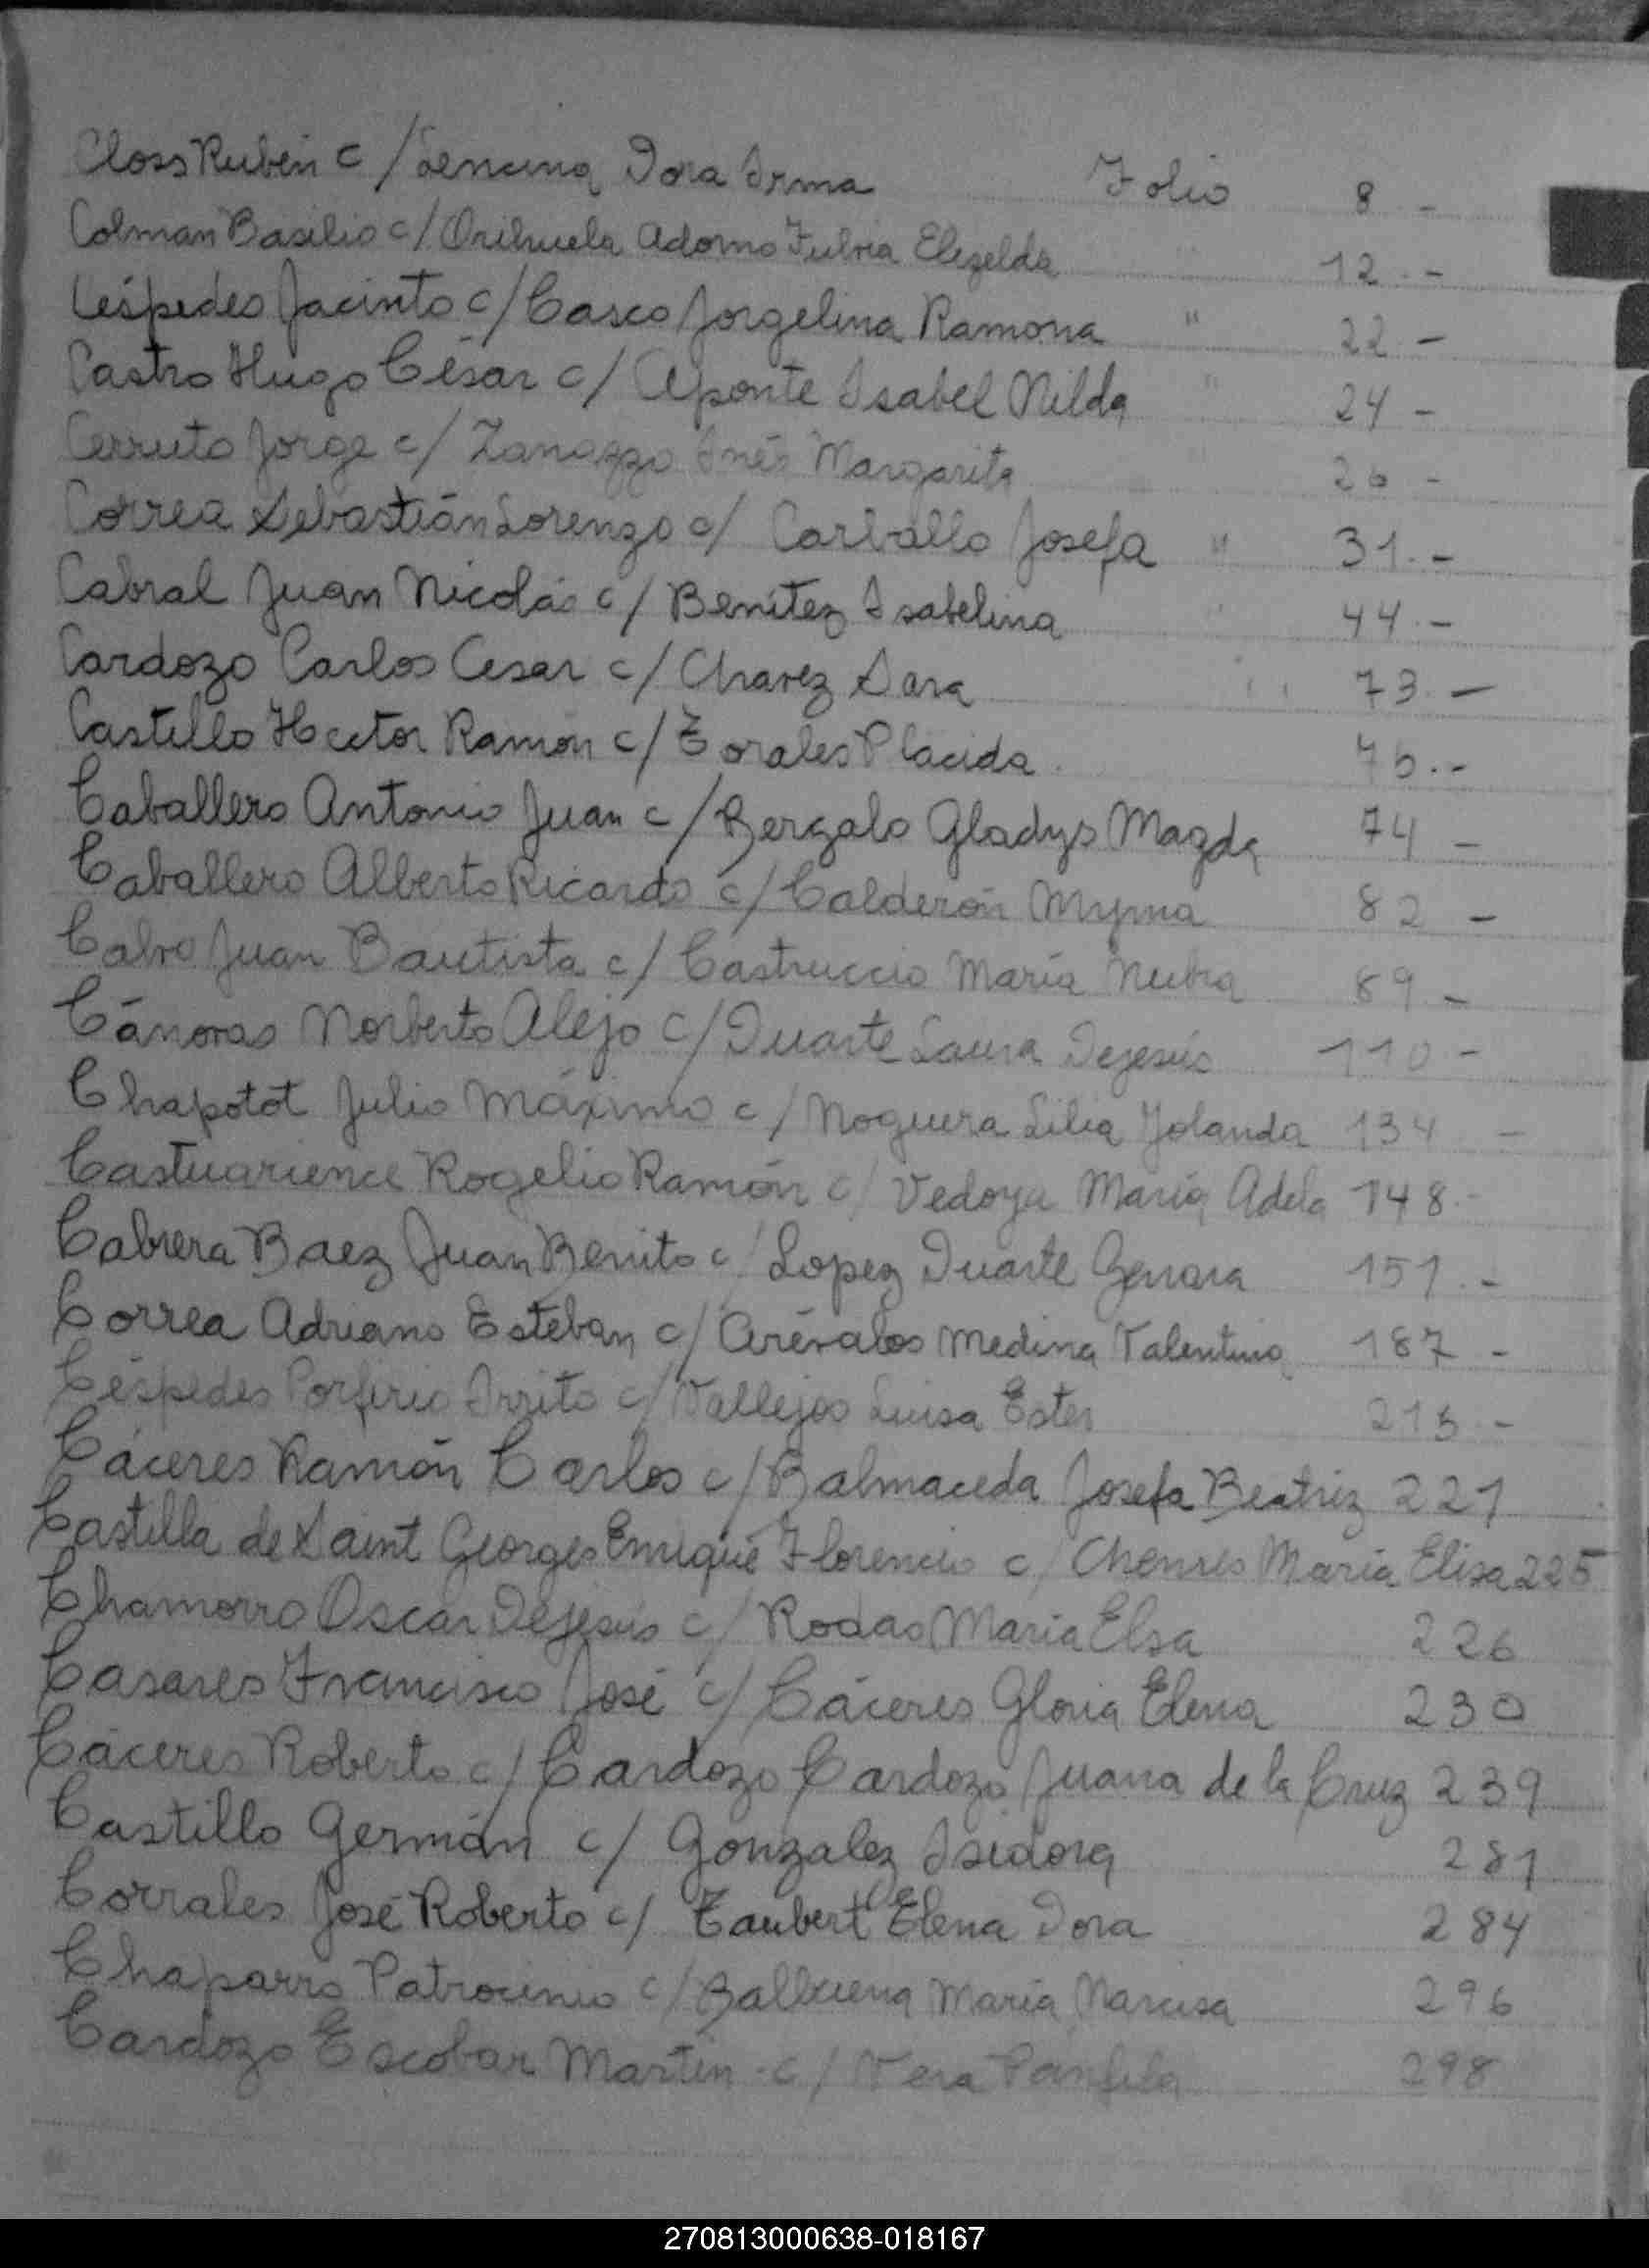 Closs Rubén c/ Lencina Dora Irma Folio 8 -
Colman Basilio c/ Orihuela Adorno Fulvia Elizelda 12.-
Céspedes Jacinto c/ Casco Jorgelina Ramona " 22.-
Castro Hugo César c/ Aponte Isabel Nilda " 24 -
Cerruto Jorge c/ Zanazzo Inés Margarita 26 -
Correa Sebastián Lorenzo c/ Carballo Josefa " 31.-
Cabral Juan Nicolás c/ Benítez Isabelina " 44.-
Cardozo Carlos Cesar c/ Chavez Sara " 73.-
Castillo Hector Ramón c/ Torales Placida 75.-
Caballero Antonio Juan c/ Bergalo Gladys Magda 74 -
Caballero Alberto Ricardo c/ Calderón Myrna 82 -
Calvo Juan Bautista c/ Castruccio María 89 -
Cánovas Norberto Alejo c/ Duarte Laura Dejesús 110 -
Chapotot Julio Máximo c/ Noguera Lilia Yolanda 134 -
Rogelio Ramón c/ Vedoya María Adela 148.-
Cabrera Baez Juan Benito c/ Lopez Duarte Genara 151.-
Correa Adriano Esteban c/ Arévalos Medina Valentina 187 -
Céspedes Porfirio c/ Vallejos Luisa Ester 215 -
Cáceres Ramón Carlos c/ Balmaceda Josefa Beatriz 221
Castilla de Saint Georges Enrique Florencio c/ María Elisa 225
Chamorro Oscar Dejesús c/ Rodas Maria Elsa 226
Casares Francisco José c/ Cáceres Gloria Elena 230
Cáceres Roberto c/ Cardozo Cardozo Juana de la Cruz 239
Castillo Germán c/ Gonzalez Isidora 281
Corrales José Roberto c/ Taubert Elena Dora 284
Chaparro Patrocinio c/ Balbuena María Narcisa 296
Cardozo Escobar Martin c/ Vera Panfila 298
270813000638-018167